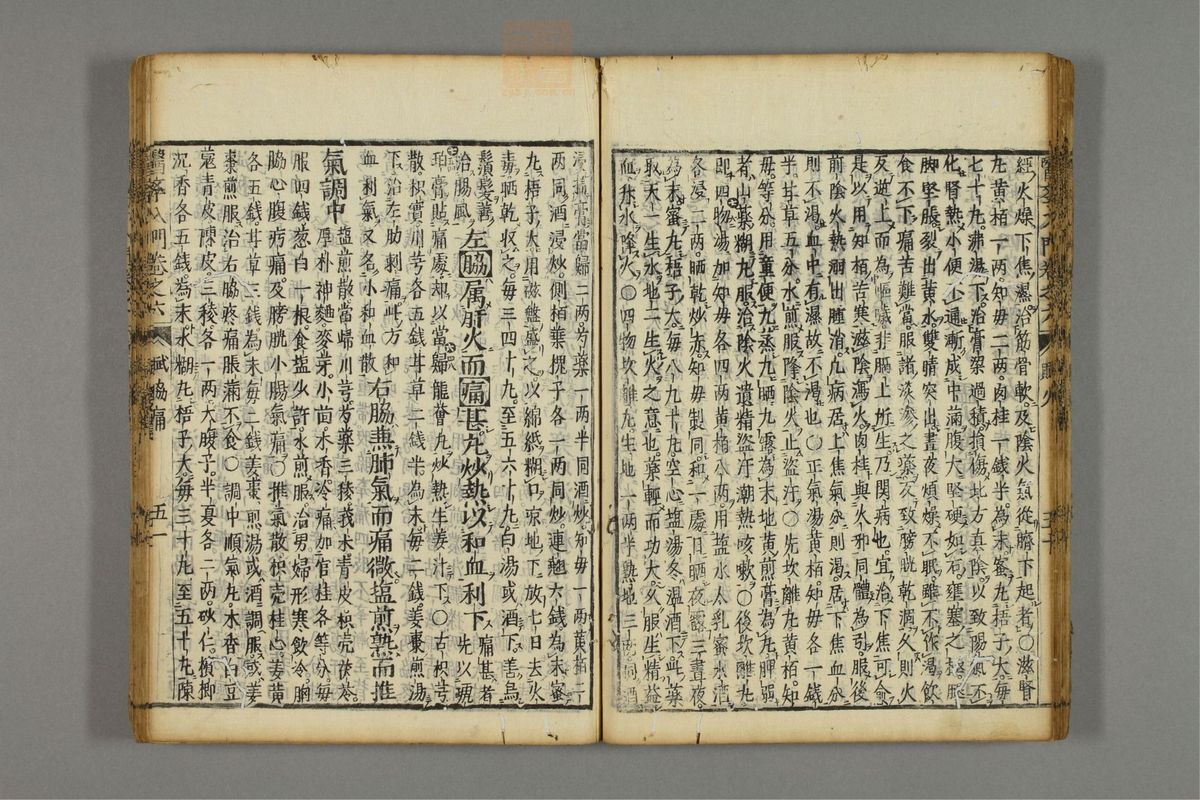 經火燥下焦濕治筋骨軟及陰火氣從臍下起者○滋腎
丸黃栢一兩知毋二兩肉桂一錢半為末蜜丸梧子大每
七十丸沸湯下治膏梁過積損傷北方真陰以致陽氣不
化腎熱小便不通漸成中滿腹大堅硬如石壅塞之極腿
脚堅脹裂出黃水雙睛突出晝夜煩燥不眠雖不作渴飲
食不下痛苦難當服諸淡滲之藥反致膀胱乾涸久則火
反逆上而為嘔噦非膈上所生乃関病也宜治下焦可愈
是以用知栢苦寒滋陰瀉火肉桂與火邪同體為引服後
前陰火熱溺出腫消凡病居上焦氣分則渴居下焦血分
則不渴血中有濕故不渴也○正氣湯黃栢知毋各一錢
半甘草五分水煎服降陰火止盜汗○先坎離丸黃栢知
毋等分用童便九蒸九晒九露為末地黃煎膏為丸脾弱
者山藥糊丸服治陰火遺精盜汗潮熱咳嗽○後坎離丸
即四物湯加知毋各四兩黃栢八兩用塩水人乳蜜水酒
各浸二兩晒乾炒赤知毋製同和一處日晒夜露三晝夜
為末蜜丸梧子大每八九十丸空心塩湯冬溫酒下此藥
取天一生水地二生火之意也藥輕而功大久服生精益
血升水降火○四物坎離丸生地一兩半熟地三兩同酒
浸搗膏當歸二兩芍藥一兩半同酒炒知毋一兩黃栢二
兩同酒浸炒側栢葉槐子各一兩同炒連翹六錢為末蜜
丸梧子大用磁盤盛之以綿紙糊口凉地下放七日去火
毒晒乾收之每三四十丸至五六十丸白湯或酒下善烏
鬚髮善治腸風
左脇属肝火而痛甚丸炒熱以和血利下痛甚者先以琥
珀膏貼痛處却以當歸龍薈丸炒熱生姜汁下○古枳芎
散枳實川芎各五錢甘草二錢半為末每二錢姜棗煎湯
下治左肋刺痛此方和血利氣又名小和血散
右脇無肺氣而痛微塩煎熟而推氣調中
塩煎散當歸川芎芍藥三稜莪朮青皮枳壳茯苓
厚朴神麴麥芽小茴木香冷痛加官桂各等分每
服四錢葱白一根食塩少許水煎服治男婦形寒飲冷胸
脇心腹疠痛及膀胱小腸氣痛○推氣散枳壳桂心姜黃
各五錢甘草三錢為末每二錢姜棗煎湯或酒調服或姜
棗煎服治右脇疼痛脹滿不食○調中順氣丸木香白豆
蔻青皮陳皮三稜各一兩大腹子半夏各二兩砂仁梹榔
沉香各五錢為末水糊丸梧子大每三十丸至五十丸陳
醫學入門卷之六
賦脇痛
五一